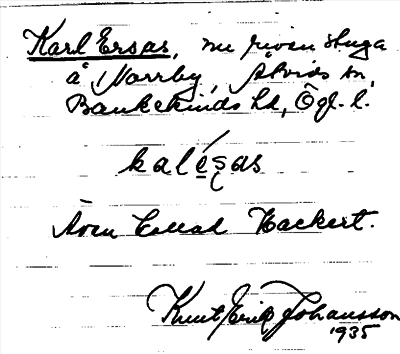 Karl Ersas, nu riven stuga
å Norrby, Åtvids sn,
Bankekinds hd, Ögl. l.
kalęsas
Även kallad Backert.
Knut Erik Johansson
1935